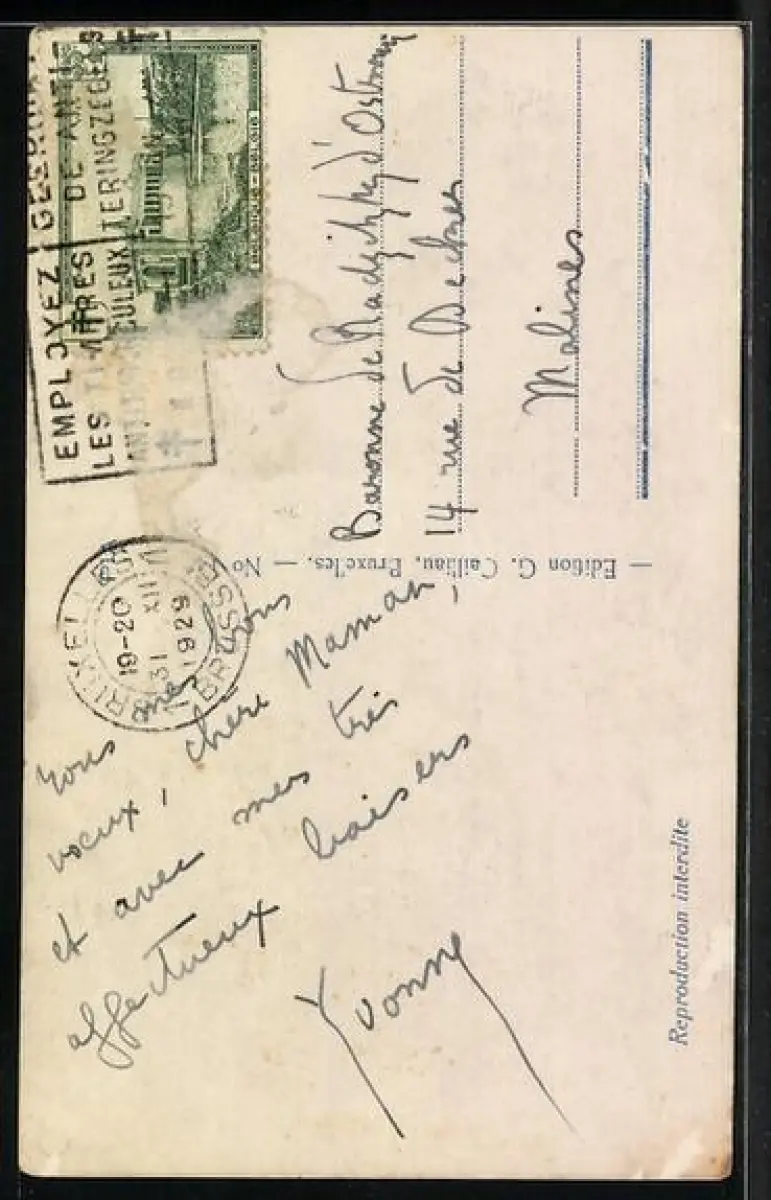 EMPLOYEZ
LES TIMBRES
DE ANTI-
TERINGZEGEL
BELGIQUE - BELGIË
BRUXELLES
19-20
31 XII
1929
BRUSSEL
Baronne de
14 rue de
Malines
— Edition G. Cailliau, Bruxelles. — No
Tous mes bons
vœux, chère Maman,
et avec mes très
affectueux baisers
Yvonne
Reproduction interdite